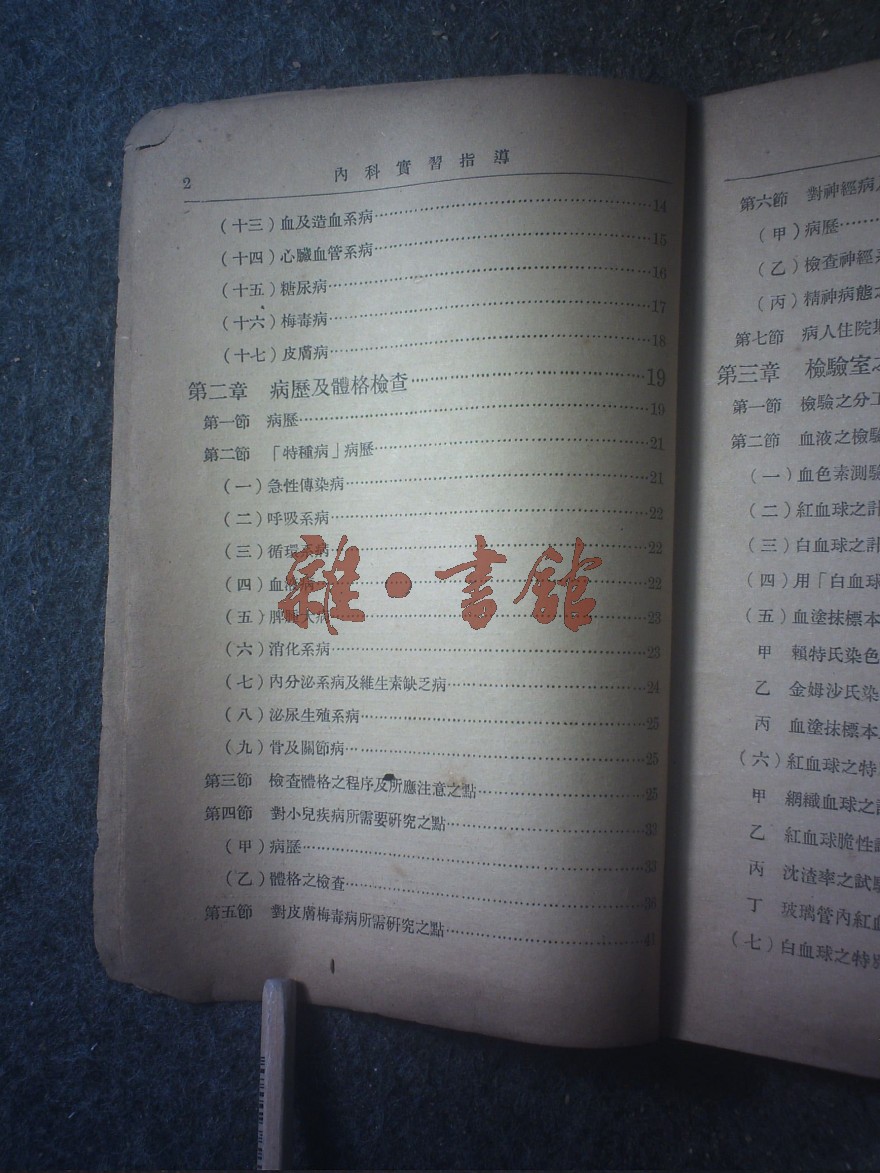 2
內科實習指導
(十三)血及造血系病……14
(十四)心臟血管系病……15
(十五)糖尿病……16
(十六)梅毒病……17
(十七)皮膚病……18
第二章 病歷及體格檢查……19
第一節 病歷……19
第二節 「特種病」病歷……21
(一)急性傳染病……21
(二)呼吸系病……22
(三)循環系病……22
(四)血液病……22
(五)脾腫大病……23
(六)消化系病……23
(七)內分泌系病及維生素缺乏病……24
(八)泌尿生殖系病……25
(九)骨及關節病……25
第三節 檢查體格之程序及所應注意之點……25
第四節 對小兒疾病所需要研究之點……33
(甲)病歷……33
(乙)體格之檢查……36
第五節 對皮膚梅毒病所需研究之點……41
雜·書館
第六節 對神經病
(甲)病歷……
(乙)檢查神經
(丙)精神病態之
第七節 病人住院
第三章 檢驗室之
第一節 檢驗之分工
第二節 血液之檢驗
(一)血色素測驗
(二)紅血球之計
(三)白血球之計
(四)用「白血球
(五)血塗抹標本
甲 賴特氏染色
乙 金姆沙氏染
丙 血塗抹標本
(六)紅血球之特
甲 網織血球之計
乙 紅血球脆性試
丙 沈渣率之試驗
丁 玻璃管內紅血
(七)白血球之特別